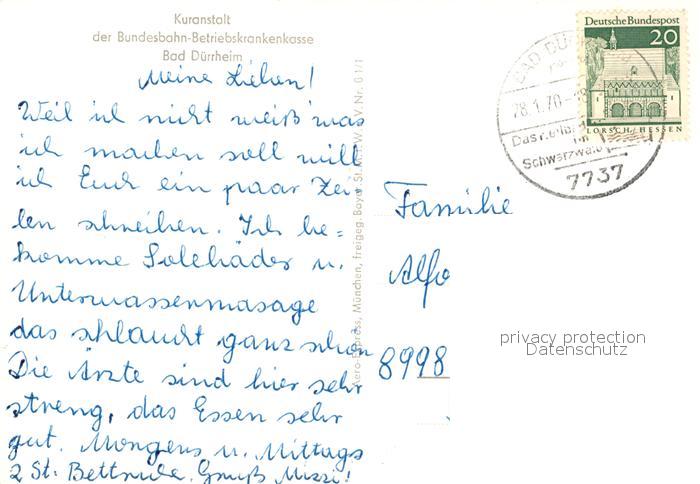 Kuranstalt
der Bundesbahn-Betriebskrankenkasse
Bad Dürrheim
Meine Lieben!
Weil ich nicht weiß was
ich machen soll will
ich Euch ein paar Zei
len schreiben. Ich be=
komme Solebäder u.
Unterwassermasage
das schlaucht ganz schön
Die Ärzte sind hier sehr
streng, das Essen sehr
gut. Morgens u. Mittags
2 St. Bettruhe. Gruß Mizzi!
Aero-Express, München, freigeg. Bayer. St. M. W. V. Nr. G 1/1
Deutsche Bundespost
20
LORSCH/HESSEN
BAD DÜ
28.1.70-18
Das
im
Schwarzwald
7737
Familie
Alfo
8998
privacy protection
Datenschutz